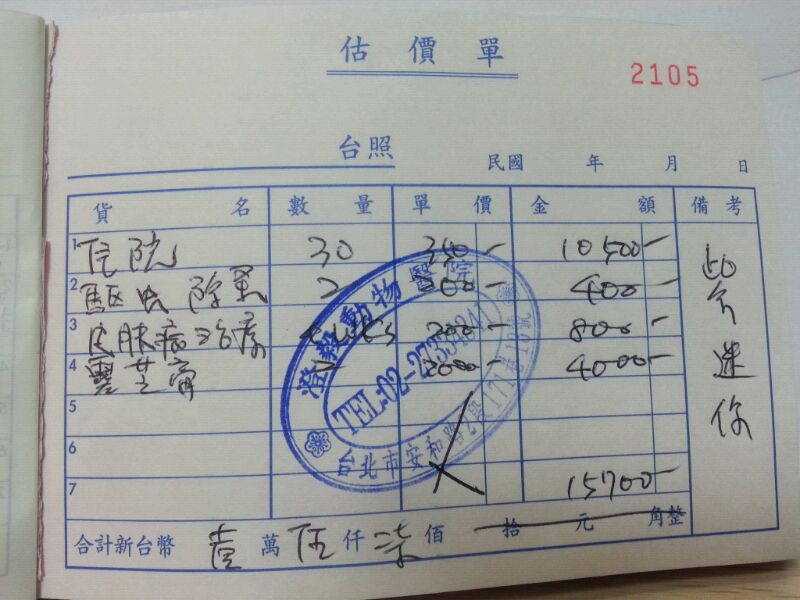 估價單
2105
台照 民國 年 月 日
貨名 數量 單價 金額 備考
1 住院 30 350- 10500-
2 驅虫 除蚤 2 200- 400-
3 皮膚病治療 200- 800-
4 靈芝膏 2 2000- 4000-
5
6
7 15700-
合計新台幣 壹萬伍仟柒佰拾元角整
迷你
澄毅動物醫院
TEL:02-27354241
台北市安和路2段171巷10號